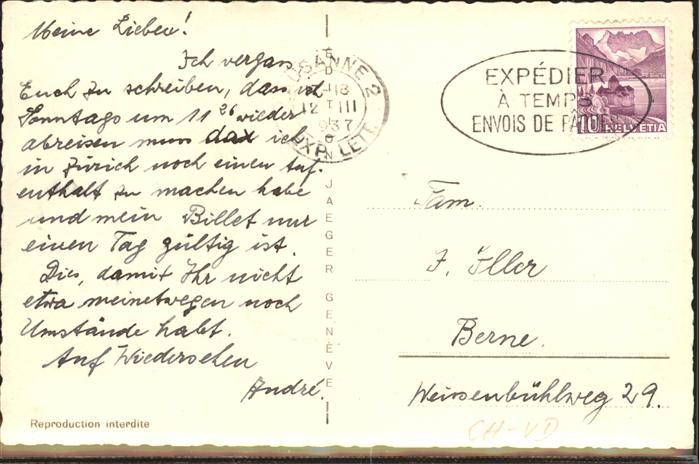 Meine Lieben!
Ich vergass
Euch zu schreiben, dass ich
Sonntags um 11 26 wieder
abreisen muss da ich
in Zürich noch einen Auf-
enthalt zu machen habe
und mein Billet nur
einen Tag gültig ist.
Dies, damit Ihr nicht
etwa meinetwegen noch
Umstände habt.
Auf Wiedersehen
André.
Reproduction interdite
JAEGER GENÈVE
LAUSANNE 2
18
12 III
1937
EXP. LETT.
EXPÉDIER
À TEMPS
ENVOIS DE PÂQUES
10 HELVETIA
Fam.
J. Iller
Berne.
Weissenbühlweg 29.
CH-VD